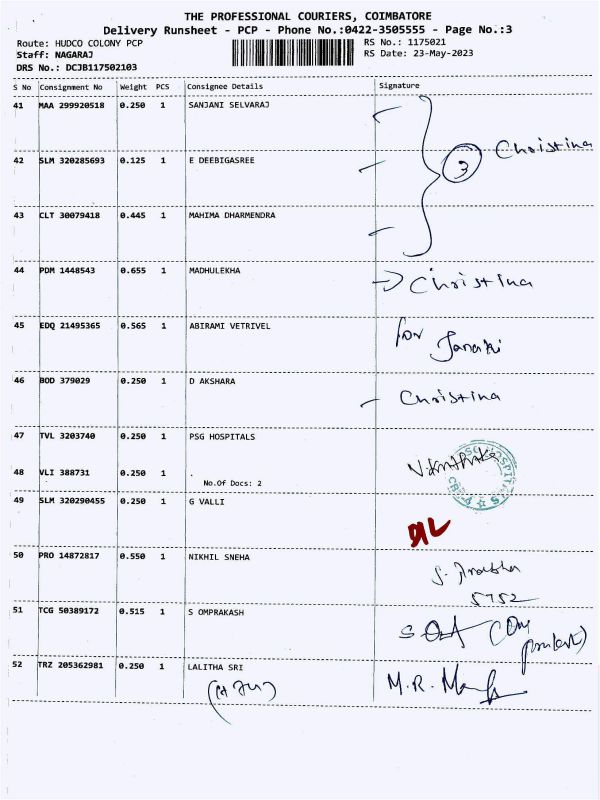 THE PROFESSIONAL COURIERS, COIMBATORE
Delivery Runsheet - PCP - Phone No.:0422-3505555 - Page No.:3
Route: HUDCO COLONY PCP RS No.: 1175021
Staff: NAGARAJ RS Date: 23-May-2023
DRS No.: DCJB117502103
S No Consignment No Weight PCS Consignee Details Signature
41 MAA 299920518 0.250 1 SANJANI SELVARAJ
3 Christina
42 SLM 320285693 0.125 1 E DEEBIGASREE
43 CLT 30079418 0.445 1 MAHIMA DHARMENDRA
44 PDM 1448543 0.655 1 MADHULEKHA Christina
45 EDQ 21495365 0.565 1 ABIRAMI VETRIVEL for Janaki
46 BOD 379029 0.250 1 D AKSHARA Christina
47 TVL 3203740 0.250 1 PSG HOSPITALS
48 VLI 388731 0.250 1 .
No.Of Docs: 2
49 SLM 320290455 0.250 1 G VALLI
50 PRO 14872817 0.550 1 NIKHIL SNEHA
5752
51 TCG 50389172 0.515 1 S OMPRAKASH
52 TRZ 205362981 0.250 1 LALITHA SRI M.R.